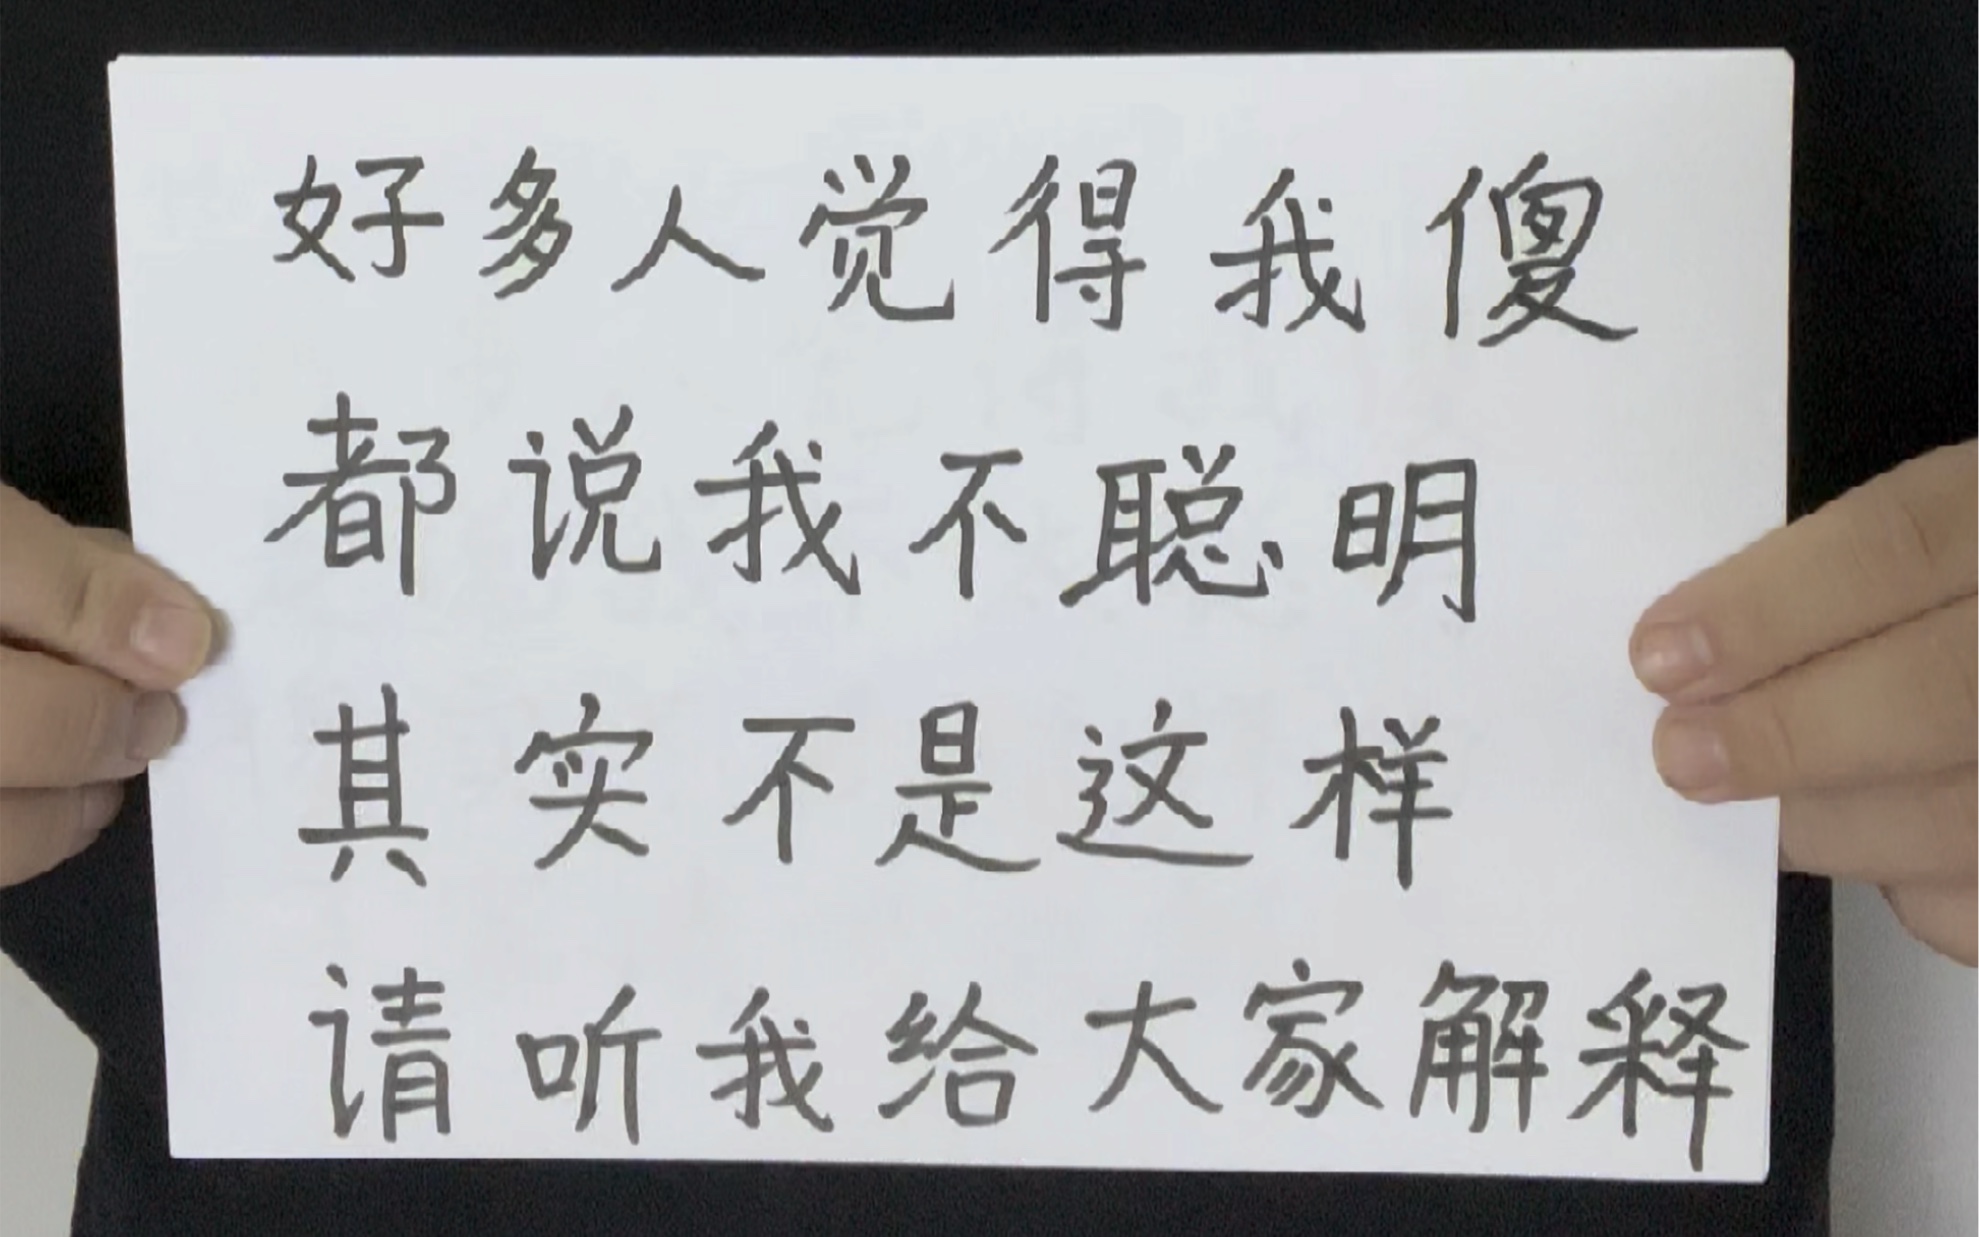 好多人觉得我傻
都说我不聪明
其实不是这样
请听我给大家解释